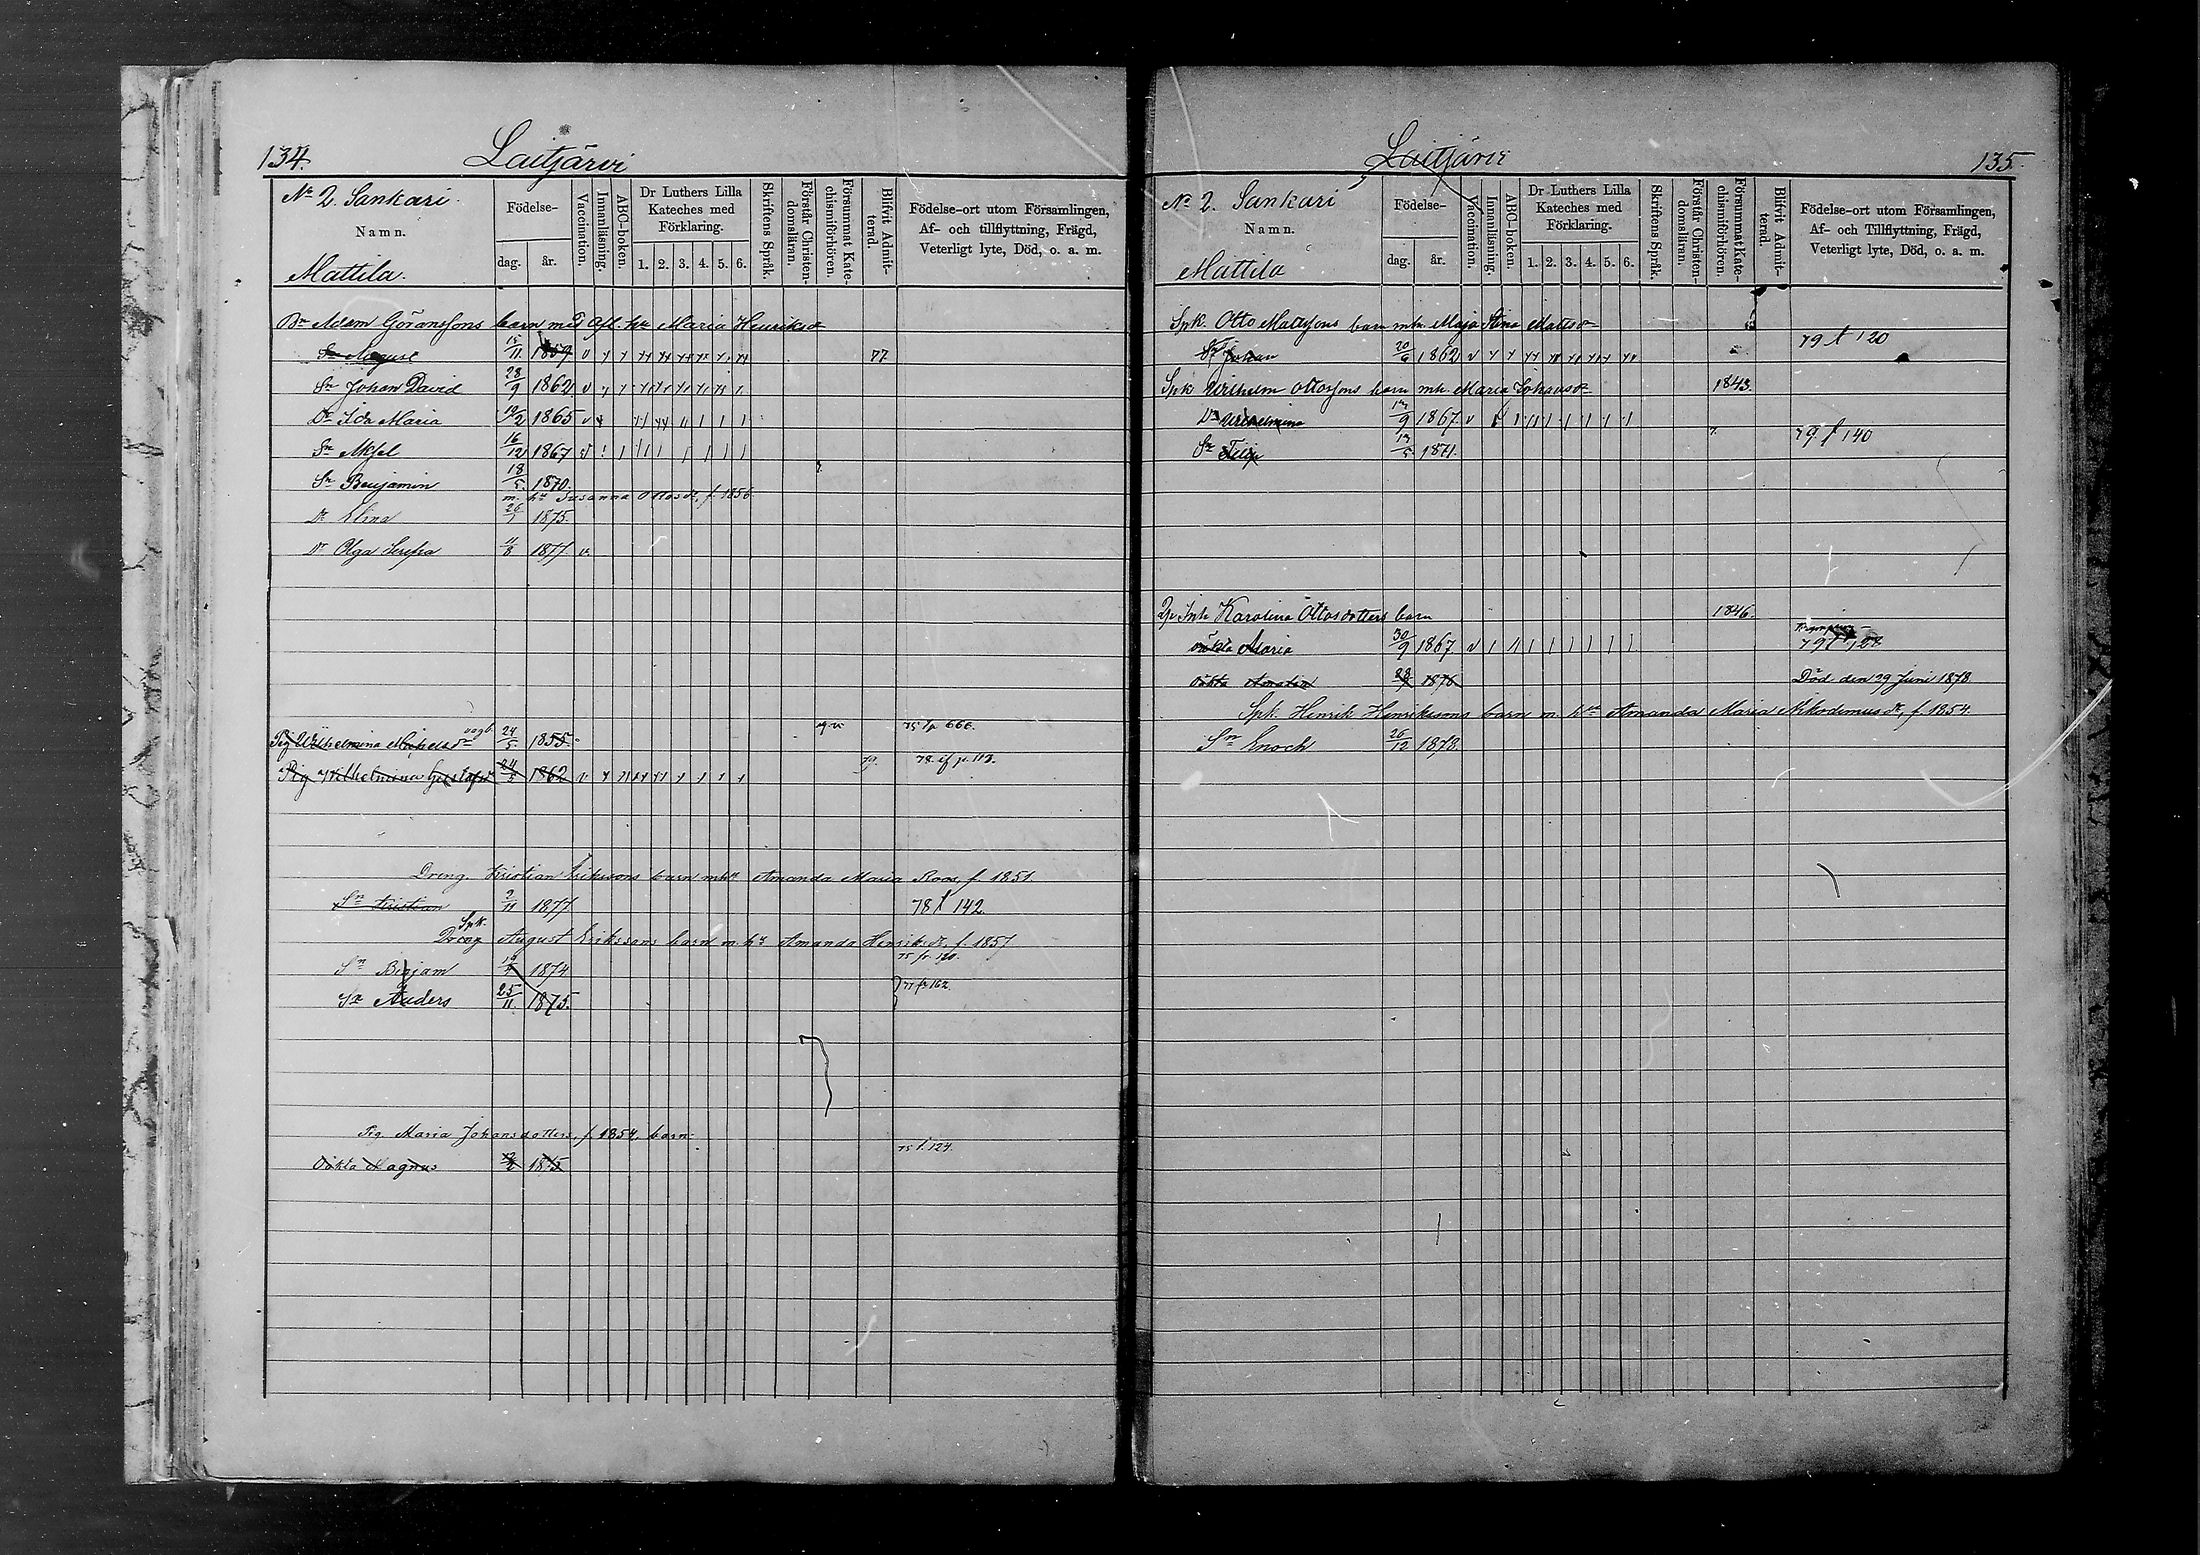 134.
Laitjärvi
No 2. Sankari.
Namn.
Mattila.
Födelse-
dag.
år.
Vaccination.
Innanläsning.
ABC-boken.
Dr Luthers Lilla
Kateches med
Förklaring.
1. 2. 3. 4. 5. 6.
Skriftens Språk.
Förstår Christen-
domsläran.
Försummat Kate-
chismiförhören.
Blifvit Admit-
terad.
Födelse-ort utom Församlingen,
Af- och tillflyttning, Frägd,
Veterligt lyte, Död, o. a. m.
Bn Adam Göranssons barn med afl. hu Maria Henriksdr
Sn August 15/11 1859 77
Sn Johan David 28/9 1862
Dr Ida Maria 1865
Sn Aksel 16/12 1867
Sn Benjamin 18/5 1870.
m. hu Susanna Ottosdr, f. 1856
Dr Elina 26/1 1875.
Dr Olga Serafia 11/8 1877
Pig Wilhelmina 24/5 1855 75 fr 666.
Pig Wilhelmina Gustafsdr 24/5 1862 79. 78. p. 113.
Dreng. Kristian Erikssons barn m hu Amanda Maria Roos, f. 1851.
Sn Kristian 9/11 1877 78 f 142.
Spk.
Dreng August Erikssons barn m. hu Amanda Henriksdr, f. 1857
75 fr 120.
Sn Benjam 1874
Sn Anders 25/11 1875. 77 fr 162.
Pig. Maria Johansdotters, f. 1854, barn:
Oäkta Magnus 1875 75 f. 124.
135.
Laitjärvi
No 2. Sankari
Namn.
Mattila
Födelse-
dag.
år.
Vaccination.
Innanläsning.
ABC-boken.
Dr Luthers Lilla
Kateches med
Förklaring.
1. 2. 3. 4. 5. 6.
Skriftens Språk.
Förstår Christen-
domsläran.
Försummat Kate-
chismiförhören.
Blifvit Admit-
terad.
Födelse-ort utom Församlingen,
Af- och Tillflyttning, Frägd,
Veterligt lyte, Död, o. a. m.
Spk. Otto Mattssons barn m hu Maja Stina Mattsdr
Sn Johan 20/6 1862 79 f 120
Spk Wilhelm Ottossons barn m hu Maria Johansdr 1843.
Dr Wilhelmina 1867. 79. f 140
Sn 1871.
Karolina Ottosdotters barn 1846.
Oäkta Maria 30/9 1867
Oäkta Amalia 1876 Död den 29 Juni 1878.
Spk. Henrik Henrikssons barn m. hu Amanda Maria Nikodemusdr, f. 1854.
Sn Enoch 26/12 1878.